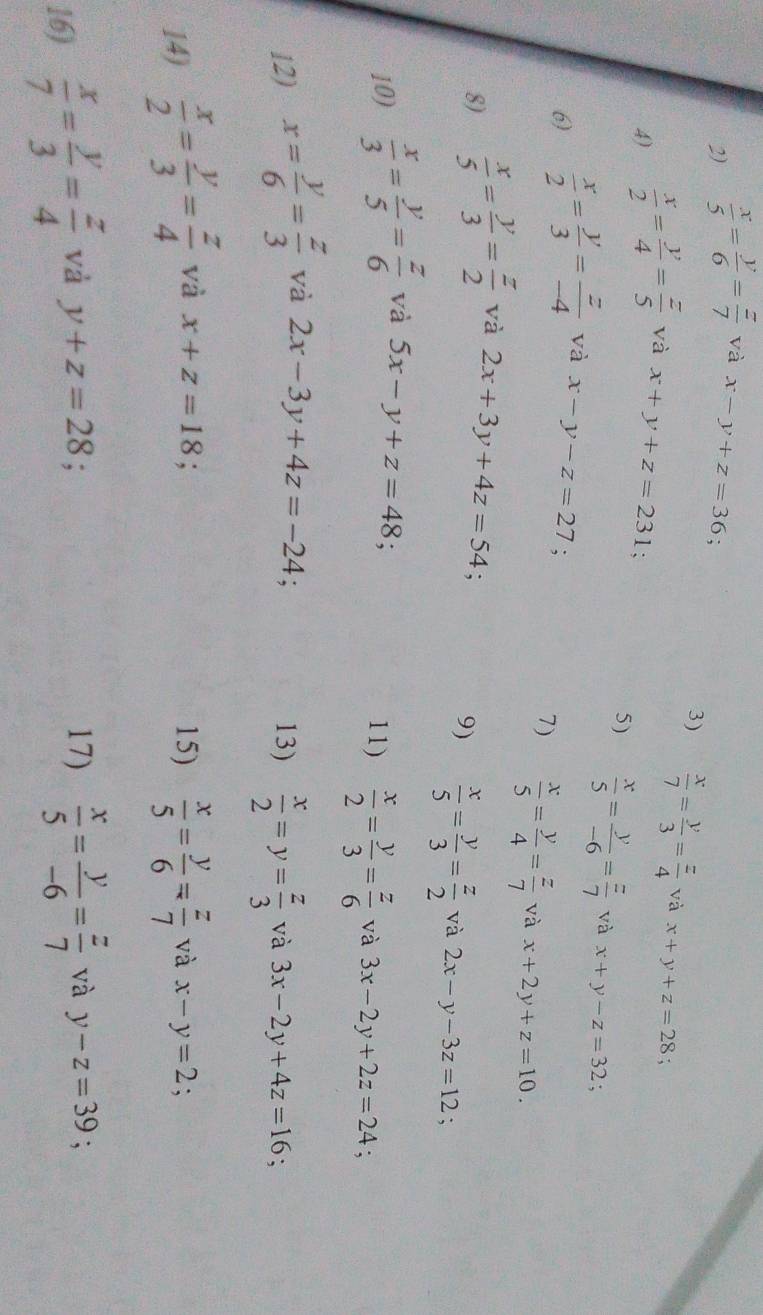 2) x/5 = y/6 = z/7 và x − y + z = 36;
3) x/7 = y/3 = z/4 và x + y + z = 28;
4) x/2 = y/4 = z/5 và x + y + z = 231;
5) x/5 = y/−6 = z/7 và x + y − z = 32;
6) x/2 = y/3 = z/−4 và x − y − z = 27;
7) x/5 = y/4 = z/7 và x + 2y + z = 10.
8) x/5 = y/3 = z/2 và 2x + 3y + 4z = 54;
9) x/5 = y/3 = z/2 và 2x − y − 3z = 12;
10) x/3 = y/5 = z/6 và 5x − y + z = 48;
11) x/2 = y/3 = z/6 và 3x − 2y + 2z = 24;
12) x = y/6 = z/3 và 2x − 3y + 4z = −24;
13) x/2 = y = z/3 và 3x − 2y + 4z = 16;
14) x/2 = y/3 = z/4 và x + z = 18;
15) x/5 = y/6 = z/7 và x − y = 2;
16) x/7 = y/3 = z/4 và y + z = 28;
17) x/5 = y/−6 = z/7 và y − z = 39;